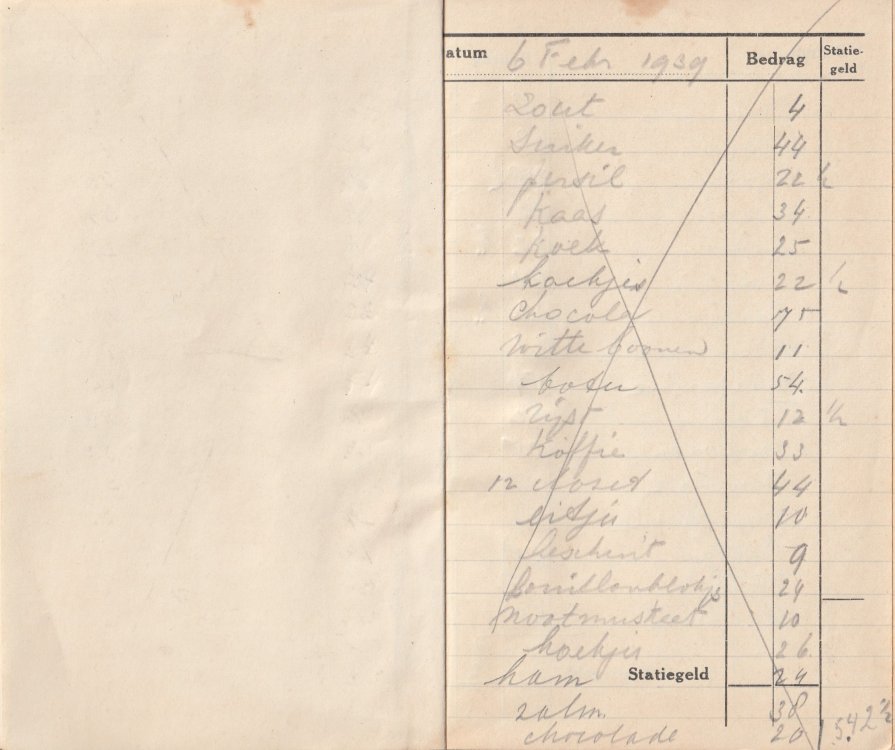 atum 6 Febr 1939 Bedrag Statie-
geld
Zout 4
Suiker 44
persil 22 ½
Kaas 34
Koek 25
koekjes 22 ½
Chocola 75
Witte boonen 11
boter 54
rijst 12 ½
Koffie 33
12 closet 44
eitjes 10
beschuit 9
bouillonblokjes 24
nootmuskaat 10
koekjes 26
ham Statiegeld 24
zalm 38
chocolade 20 5.42 ½